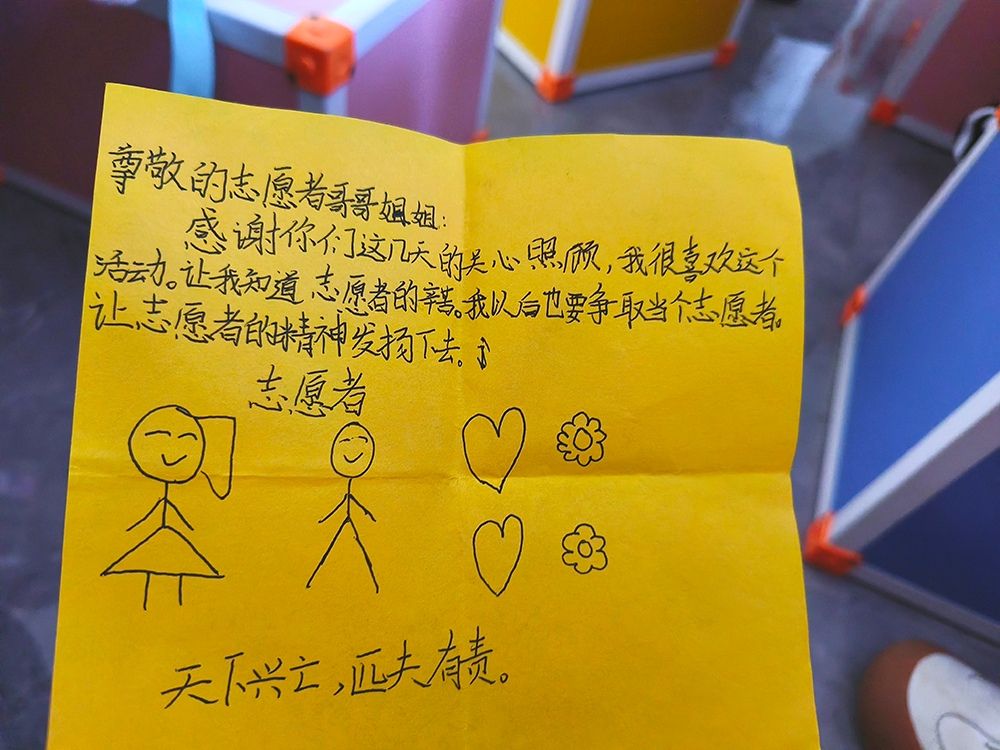 尊敬的志愿者哥哥姐姐：
感谢你们这几天的关心照顾，我很喜欢这个
活动。让我知道志愿者的辛苦。我以后也要争取当个志愿者。
让志愿者的精神发扬下去。
志愿者
天下兴亡，匹夫有责。